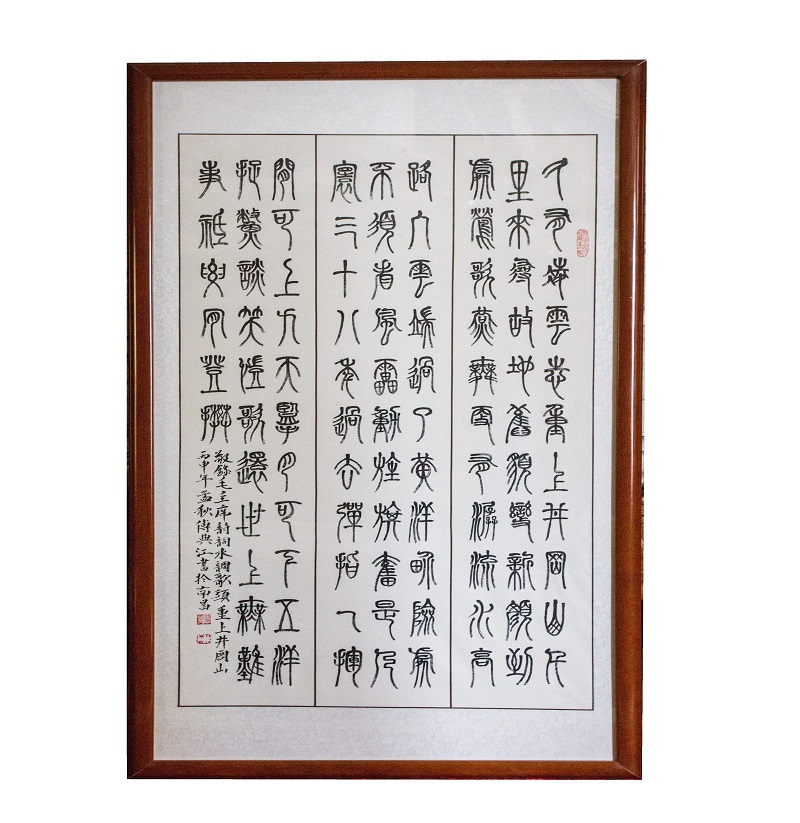 久有凌雲志重上井岡山千
里來尋故地舊貌變新顏到
處鶯歌燕舞更有潺流水高
路入雲端過了黃洋界險處
不須看風雷動旌旗奮是人
寰三十八年過去彈指一揮
間可上九天攬月可下五洋
捉鱉談笑凱歌還世上無難
事祇要肯登攀
敬錄毛主席詩詞水調歌頭重上井岡山
丙申年孟秋傅典江書於南昌